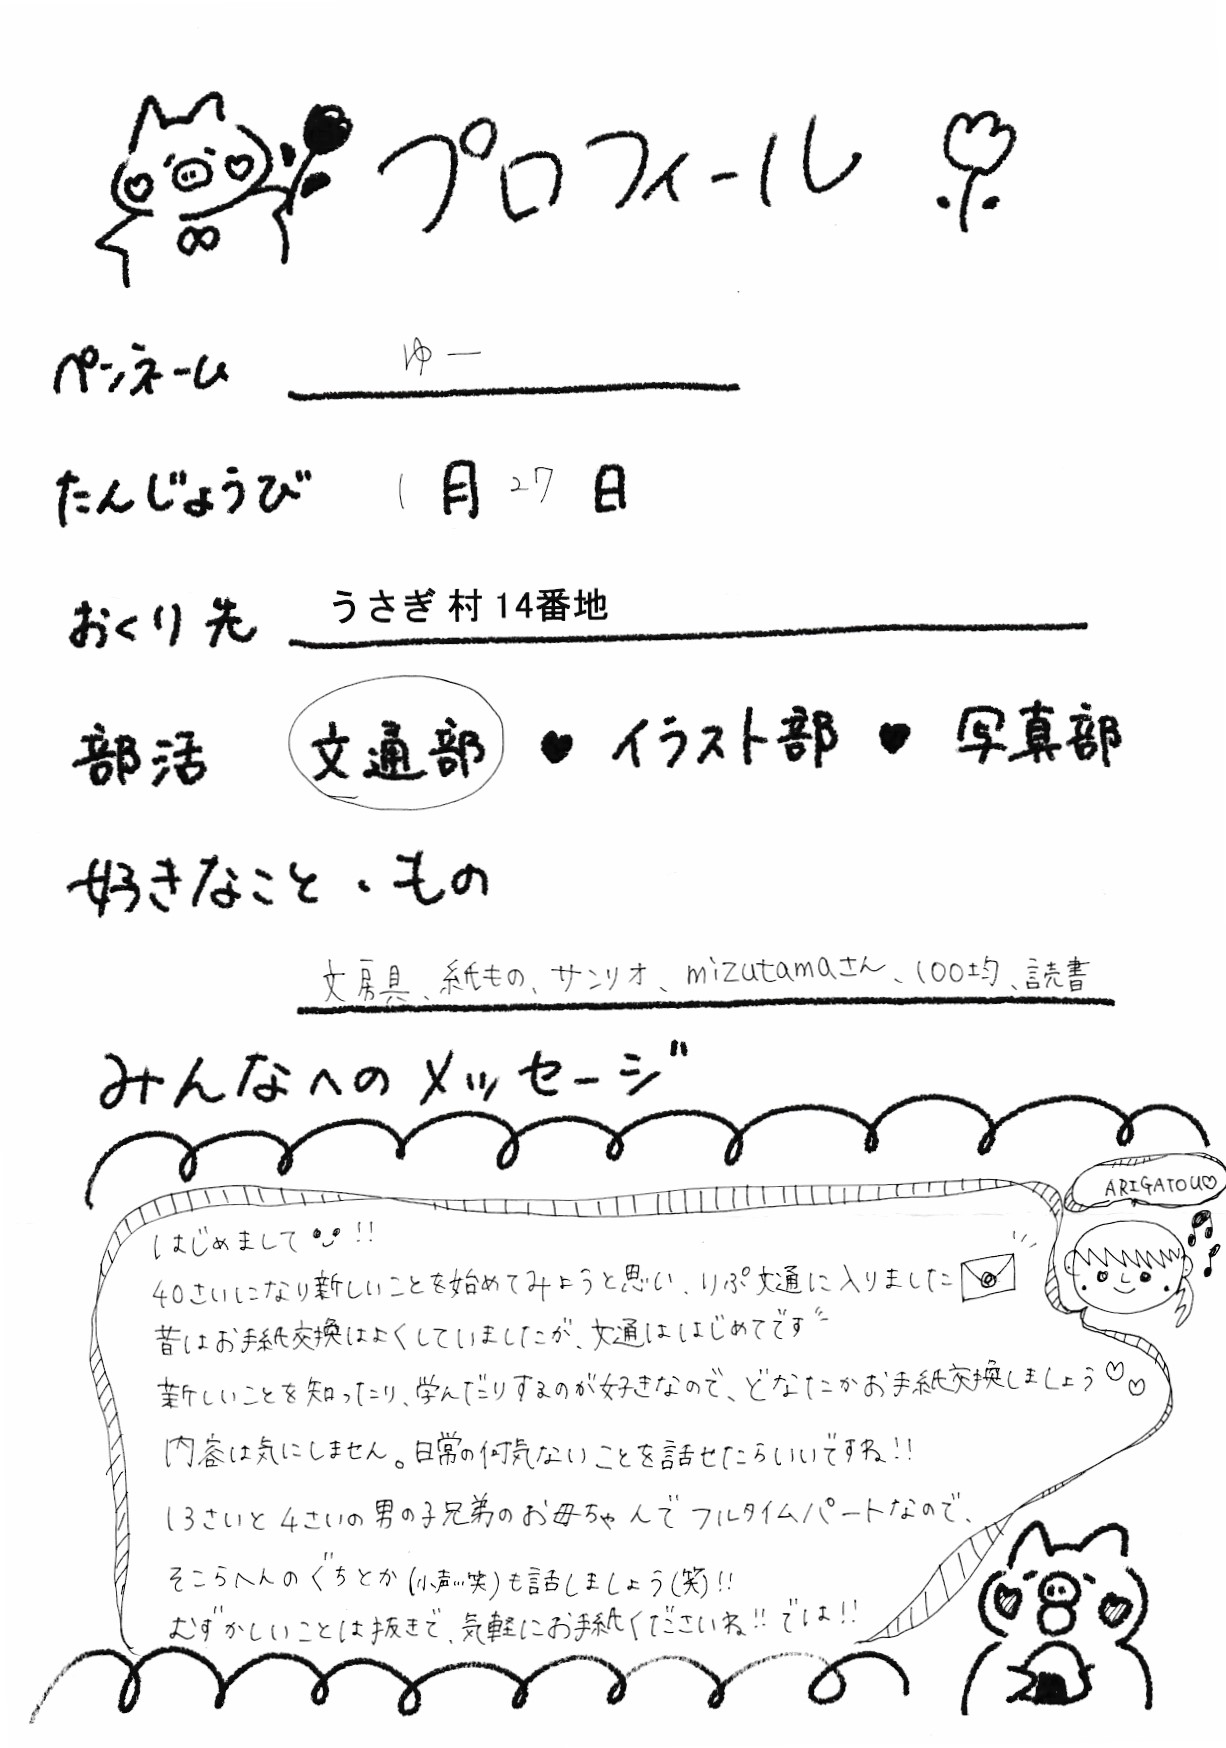 プロフィール
ペンネーム ゆー
たんじょうび 1月27日
おくり先 うさぎ村14番地
部活 文通部 ♥ イラスト部 ♥ 写真部
好きなこと・もの
文房具、紙もの、サンリオ、mizutamaさん、100均、読書
みんなへのメッセージ
ARIGATOU♡
はじめまして!!
40さいになり新しいことを始めてみようと思い、りぷ文通に入りました
昔はお手紙交換はよくしていましたが、文通ははじめてです
新しいことを知ったり、学んだりするのが好きなので、どなたかお手紙交換しましょう♡♡
内容は気にしません。日常の何気ないことを話せたらいいですね!!
13さいと4さいの男の子兄弟のお母ちゃんでフルタイムパートなので、
そこらへんのぐちとか(小声…笑)も話しましょう(笑)!!
むずかしいことは抜きで、気軽にお手紙くださいね!!では!!